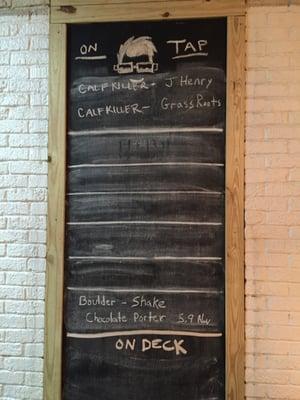 ON TAP
CALFKILLER - J Henry
CALFKILLER - GrassRoots
Boulder - Shake
Chocolate Porter 5.9
ON DECK